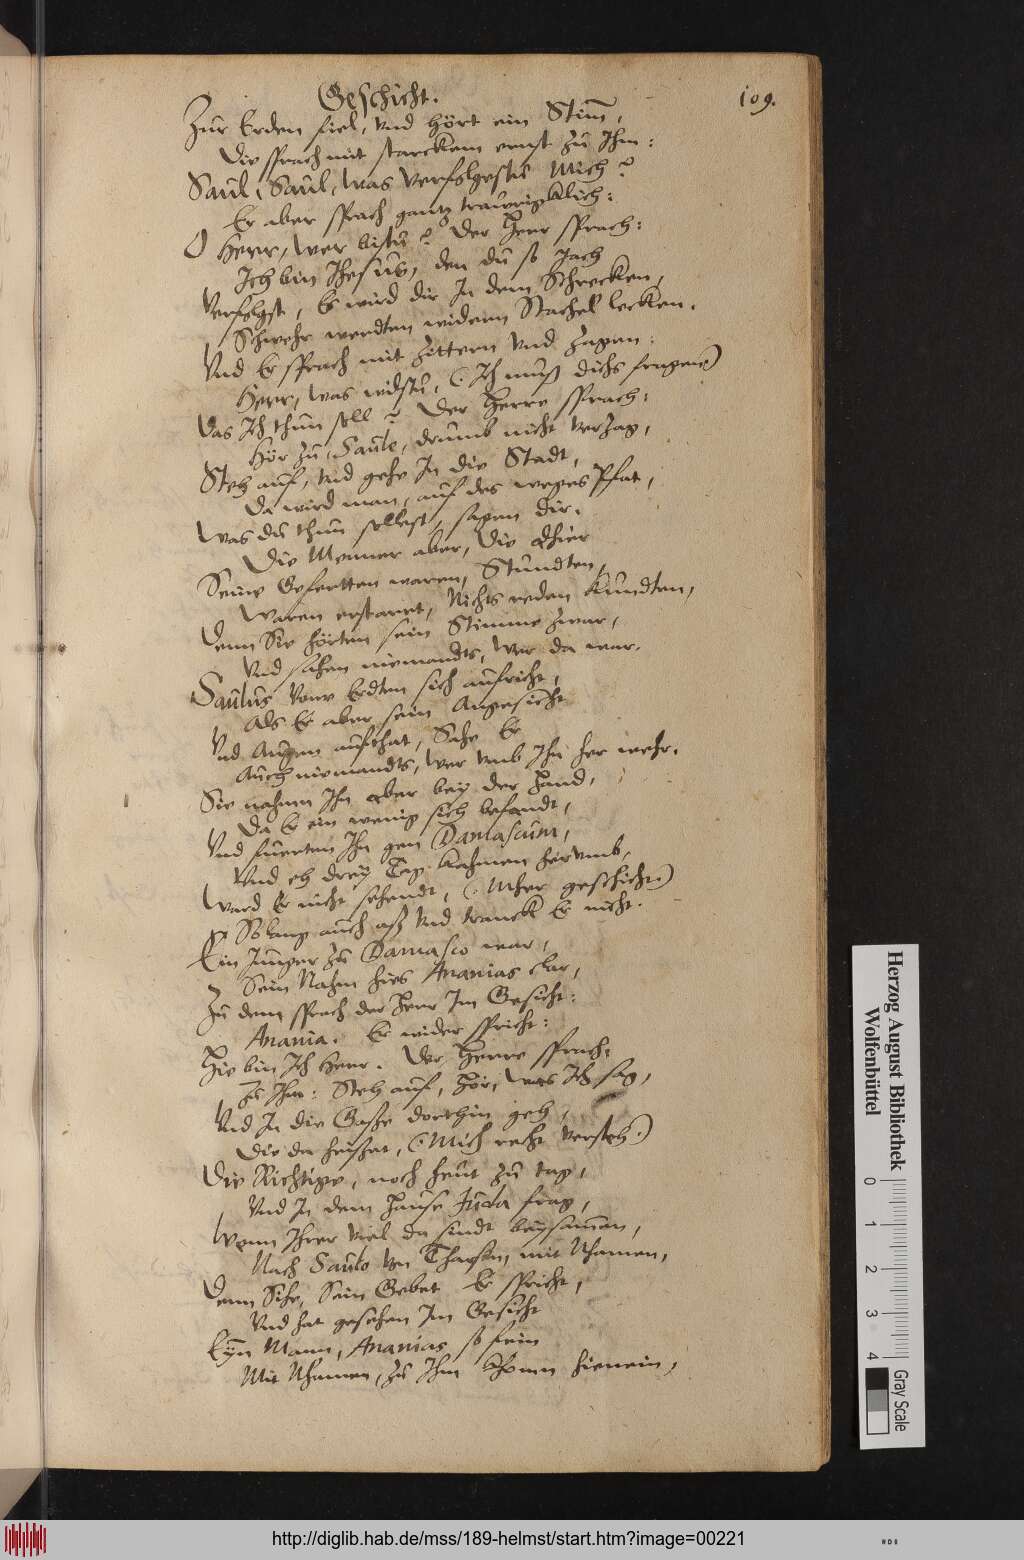 Geschicht.
109.
Zur Erden fiel, Vnd hört ein Stim̄,
Die sprach mit starckem ernst zu Ihm:
Saul, Saul, was Verfolgestu Mich?
Er aber sprach gantz traurigklich:
O Herr, wer bistu? Der Herr sprach:
Ich bin Ihesus, den du so Jach
Verfolgst, Es wird dir In dem Schrecken,
Schwehr werdten widern Stachel lecken.
Vnd Er sprach mit Zittern Vnd Zagen:
Herr, was wilstu, (Ich muß dichs fragen)
Das Ich thun soll? Der Herre sprach:
Hör zu, Saule, drumb nicht Verzag,
Steh auf, Vnd gehe In die Stadt,
Da wird man, auf des weges Pfat,
Was du thun sollest, sagen dir.
Die Menner aber, Die
Seine Gefertten waren, Stundten,
Waren erstarret, Nichts reden Kundten,
Denn Sie hörten sein Stimme zwar,
Vnd sahen niemandts, Wer da war.
Saulus Vonn Erdten sich aufricht,
Als Er aber sein Angesicht
Vnd Augen aufthat, Sahe Er
Auch niemandts, Wer Vmb Ihn her wehr.
Sie nahmen Ihn aber bey der Hand,
Da Er ein wenig sich befandt,
Vnd fuerten Ihn gen Damascum,
Vnd eh drey Tag Kahmen herumb,
Ward Er nicht sehendt, (Mher geschicht)
So lang auch aß Vnd tranck Er nicht.
Ein Junger zu Damasco war,
Sein Nahm hies Ananias klar,
Zu dem sprach der Herr Im Gesicht:
Anania. Er wider spricht:
Hie bin Ich Herr. Der Herre sprach,
Zu Ihm: Steh auf, Hör, was Ich sag,
Vnd In die Gasse dorthin geh,
Die da heisset, (Mich recht Versteh)
Die Richtige, noch heut zu tag,
Vnd In dem Hause Juda frag,
Wenn Ihrer Viel da sindt beysam̄en,
Nach Saulo Von Tharsen, mit Nhamen,
Denn Sihe, Sein Gebet Er spricht,
Vnd hat gesehen Im Gesicht
Eyn Mann, Ananias so fein
Mit Nhamen, zu Ihm Khomn hienein,
Herzog August Bibliothek
Wolfenbüttel
0 1 2 3 4
Gray Scale
http://diglib.hab.de/mss/189-helmst/start.htm?image=00221